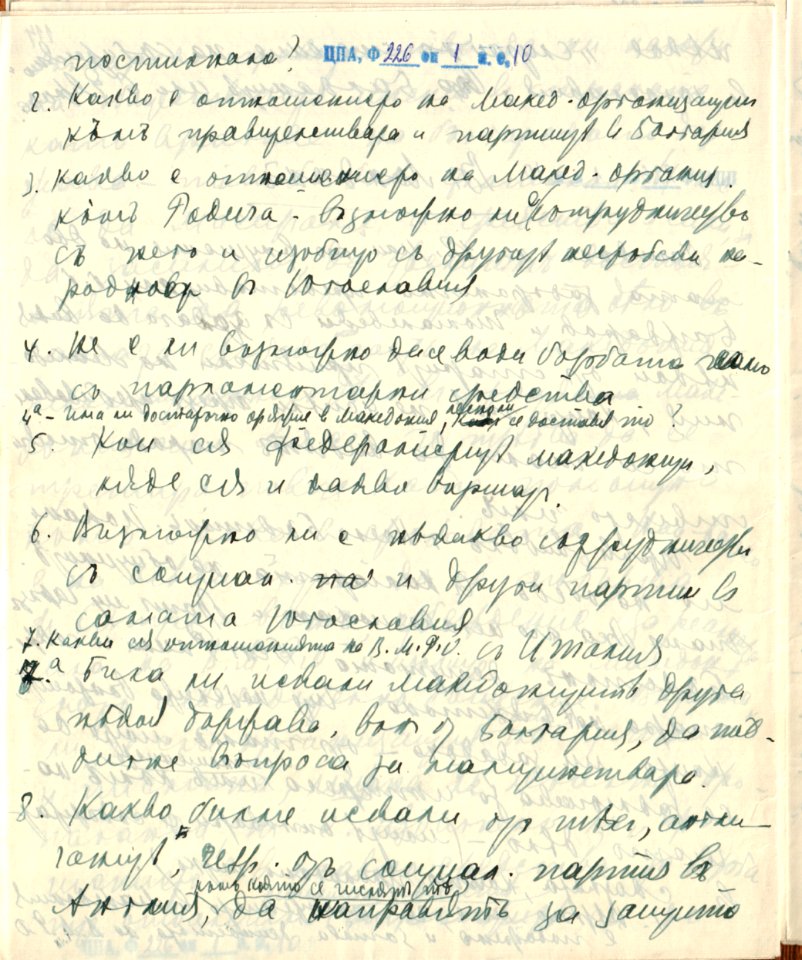 постигнало?
ЦПА, Ф 226 оп 1 а. е. 10
2. Какво е отношението на Макед. организации
къмъ правителствата и партиитѣ въ България
3. Какво е отношението на Макед. органия.
къмъ Радича - възможно ли сътрудничество
съ него и изобщо съ другитѣ несръбски на-
родности въ Югославия
4. Не е ли възможно да се води борбата само
съ парламентарни средства
4а - Има ли достатъчно оръжие в Македония, се доставя то?
5. Кои сѫ федералиститѣ македонци,
кѫде сѫ и какво вършат.
6. Възможно ли е нѣкакво сътрудничество
съ социал. и други партии въ
самата Югославия
7. Какви сѫ отношенията на В.М.Р.О. съ Италия
7.а Биха ли искали Македонцитѣ друга
нѣкоя държава, вън от България, да под-
дигне въпроса за малцинствата.
8. Какво биха искали от англи-
чанитѣ, resp. отъ социал. партия въ
Англия, към която се числятъ тѣ, да направятъ за защита